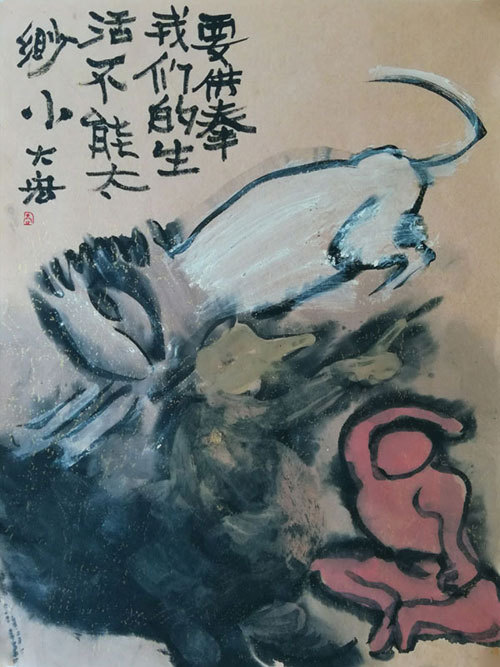 要供奉
我们的生
活不能太
缈小 大